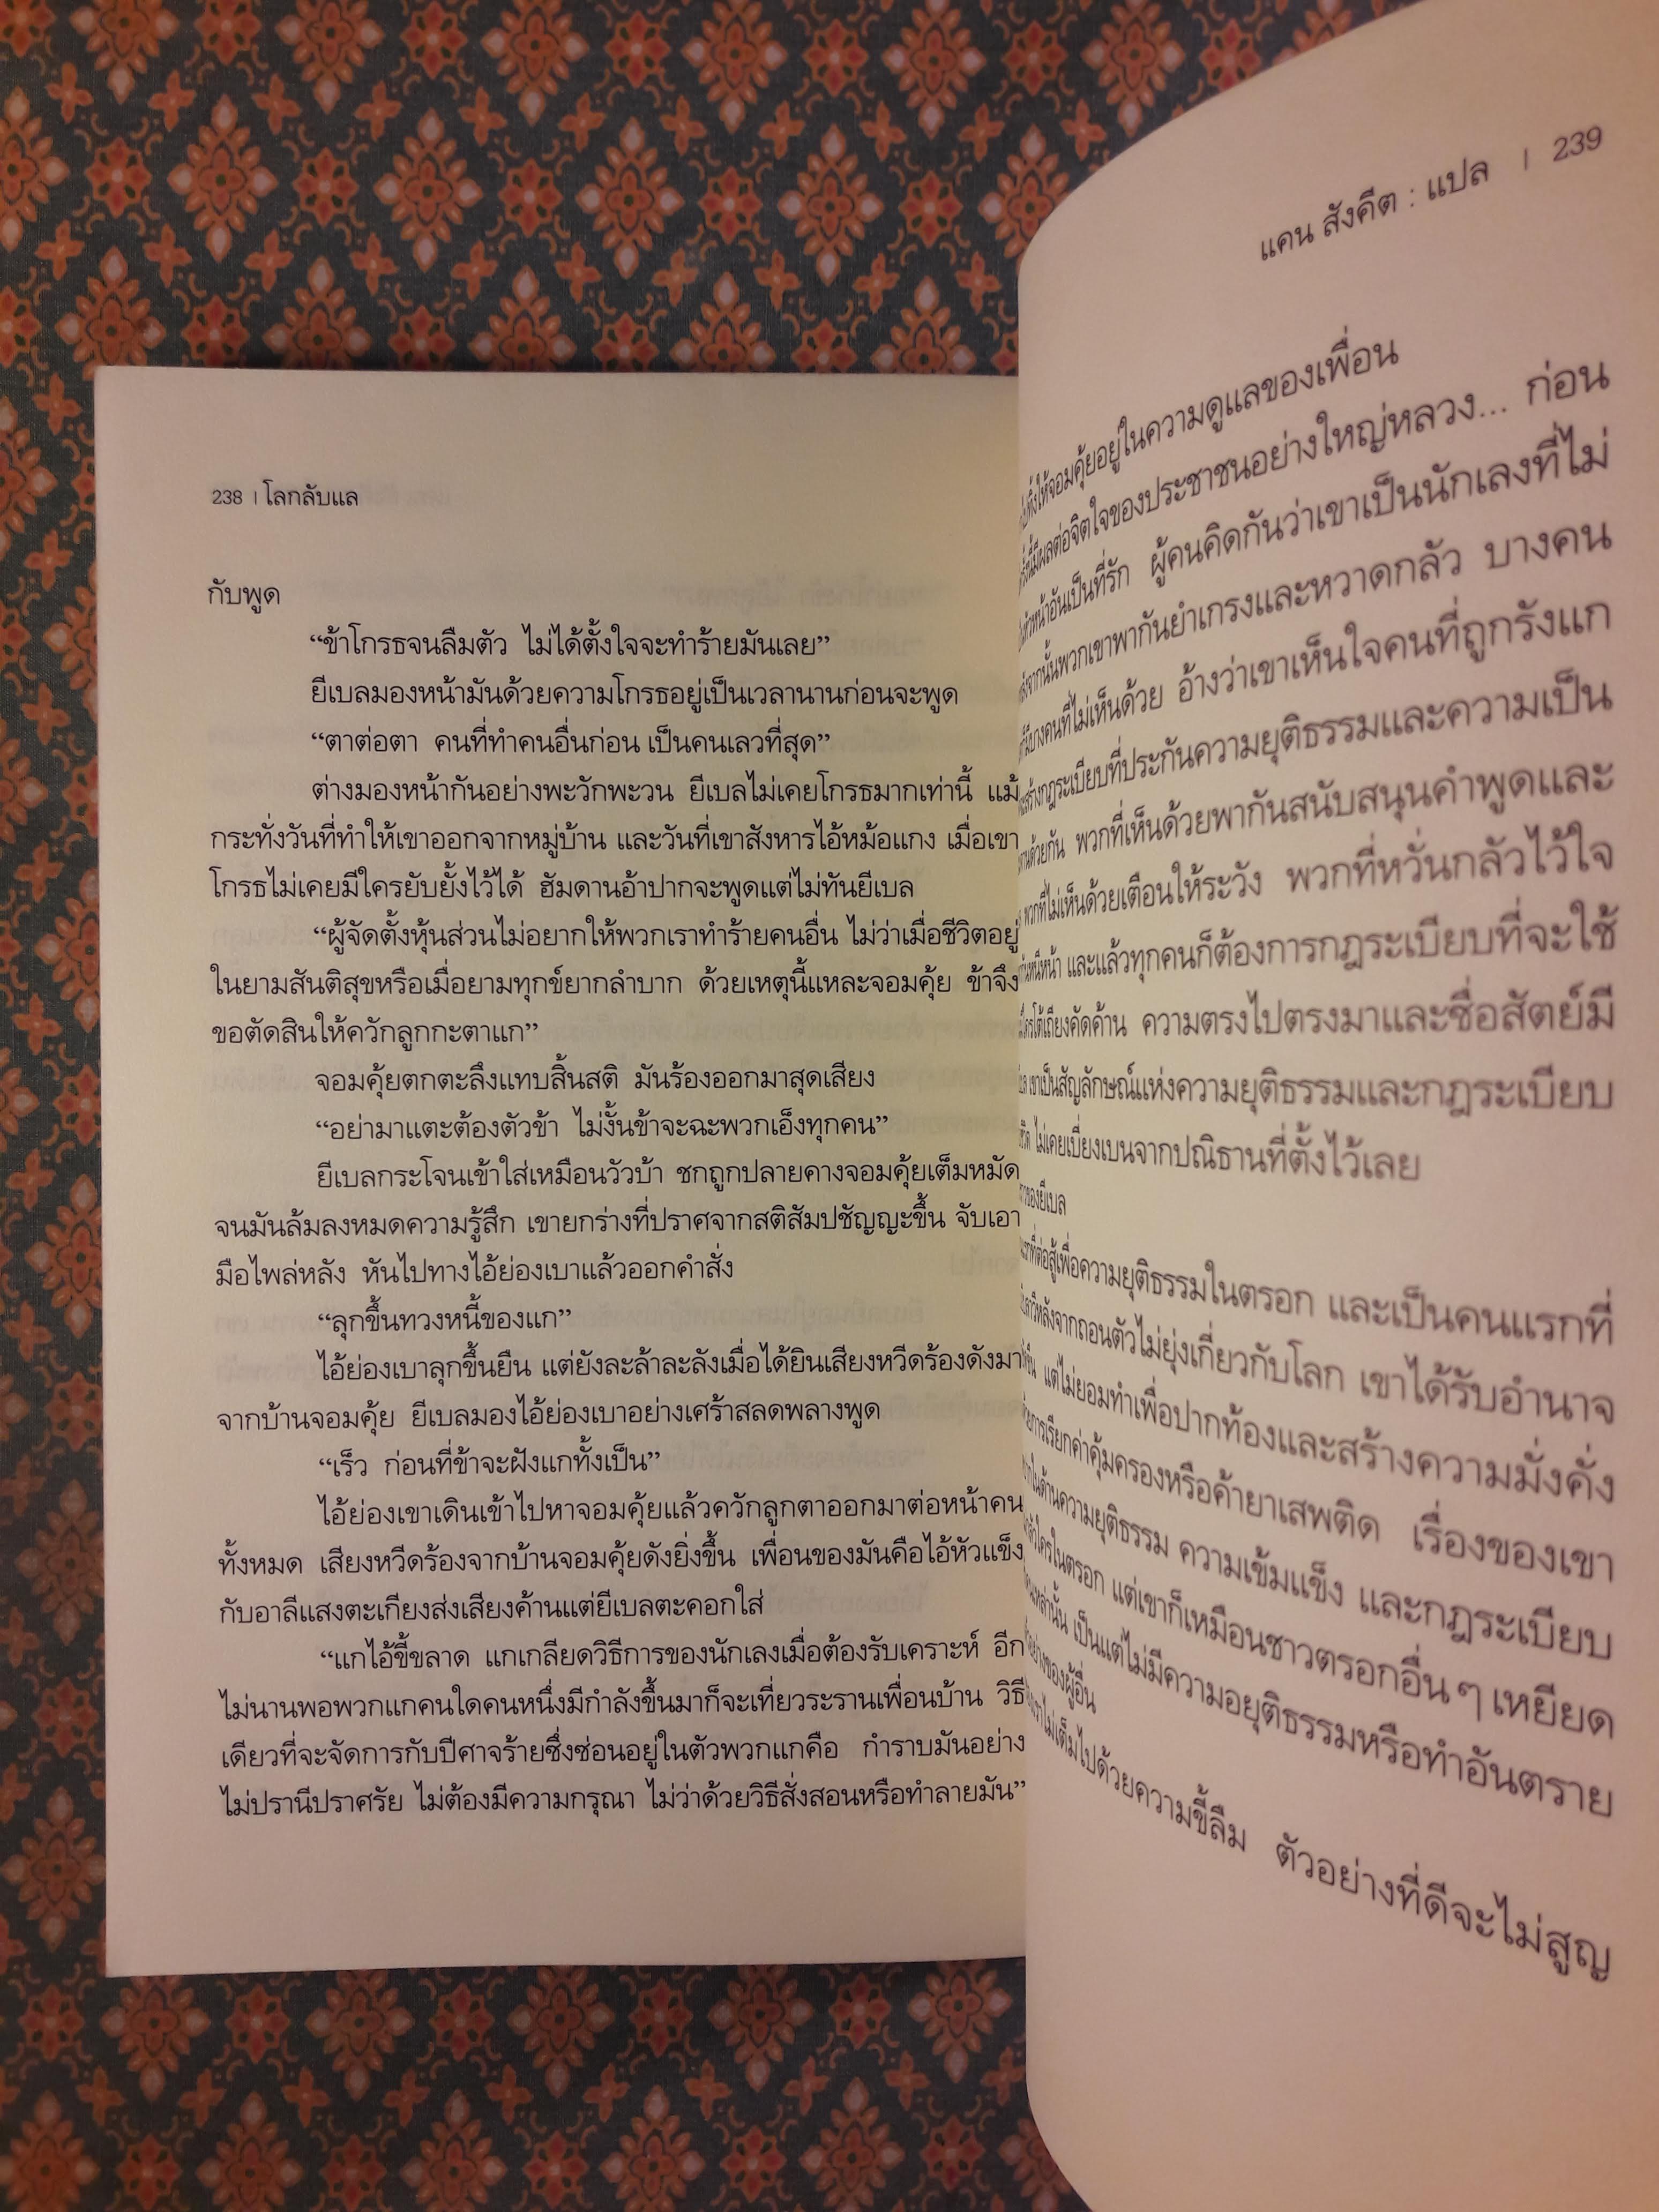 238 | โลกลับแล
กับพูด
“ข้าโกรธจนลืมตัว ไม่ได้ตั้งใจจะทำร้ายมันเลย”
ยีเบลมองหน้ามันด้วยความโกรธอยู่เป็นเวลานานก่อนจะพูด
“ตาต่อตา คนที่ทำคนอื่นก่อน เป็นคนเลวที่สุด”
ต่างมองหน้ากันอย่างพะวักพะวน ยีเบลไม่เคยโกรธมากเท่านี้ แม้
กระทั่งวันที่ทำให้เขาออกจากหมู่บ้าน และวันที่เขาสังหารไอ้หม้อแกง เมื่อเขา
โกรธไม่เคยมีใครยับยั้งไว้ได้ ฮัมดานอ้าปากจะพูดแต่ไม่ทันยีเบล
“ผู้จัดตั้งหุ้นส่วนไม่อยากให้พวกเราทำร้ายคนอื่น ไม่ว่าเมื่อชีวิตอยู่
ในยามสันติสุขหรือเมื่อยามทุกข์ยากลำบาก ด้วยเหตุนี้แหละจอมคุ้ย ข้าจึง
ขอตัดสินให้ควักลูกกะตาแก”
จอมคุ้ยตกตะลึงแทบสิ้นสติ มันร้องออกมาสุดเสียง
“อย่ามาแตะต้องตัวข้า ไม่งั้นข้าจะฉะพวกเอ็งทุกคน”
ยีเบลกระโจนเข้าใส่เหมือนวัวบ้า ชกถูกปลายคางจอมคุ้ยเต็มหมัด
จนมันล้มลงหมดความรู้สึก เขายกร่างที่ปราศจากสติสัมปชัญญะขึ้น จับเอา
มือไพล่หลัง หันไปทางไอ้ย่องเบาแล้วออกคำสั่ง
“ลุกขึ้นทวงหนี้ของแก”
ไอ้ย่องเบาลุกขึ้นยืน แต่ยังละล้าละลังเมื่อได้ยินเสียงหวีดร้องดังมา
จากบ้านจอมคุ้ย ยีเบลมองไอ้ย่องเบาอย่างเศร้าสลดพลางพูด
“เร็ว ก่อนที่ข้าจะฝังแกทั้งเป็น”
ไอ้ย่องเขาเดินเข้าไปหาจอมคุ้ยแล้วควักลูกตาออกมาต่อหน้าคน
ทั้งหมด เสียงหวีดร้องจากบ้านจอมคุ้ยดังยิ่งขึ้น เพื่อนของมันคือไอ้หัวแข็ง
กับอาลีแสงตะเกียงส่งเสียงค้านแต่ยีเบลตะคอกใส่
“แกไอ้ขี้ขลาด แกเกลียดวิธีการของนักเลงเมื่อต้องรับเคราะห์ อีก
ไม่นานพอพวกแกคนใดคนหนึ่งมีกำลังขึ้นมาก็จะเที่ยวระรานเพื่อนบ้าน วิธี
เดียวที่จะจัดการกับปีศาจร้ายซึ่งซ่อนอยู่ในตัวพวกแกคือ กำราบมันอย่าง
ไม่ปรานีปราศรัย ไม่ต้องมีความกรุณา ไม่ว่าด้วยวิธีสั่งสอนหรือทำลายมัน”
แคน สังคีต : แปล | 239
ทิ้งให้จอมคุ้ยอยู่ในความดูแลของเพื่อน
มีผลต่อจิตใจของประชาชนอย่างใหญ่หลวง... ก่อน
หน้าอันเป็นที่รัก ผู้คนคิดกันว่าเขาเป็นนักเลงที่ไม่
จากนั้นพวกเขาพากันยำเกรงและหวาดกลัว บางคน
มีบางคนที่ไม่เห็นด้วย อ้างว่าเขาเห็นใจคนที่ถูกรังแก
สร้างกฎระเบียบที่ประกันความยุติธรรมและความเป็น
ด้วยกัน พวกที่เห็นด้วยพากันสนับสนุนคำพูดและ
พวกที่ไม่เห็นด้วยเตือนให้ระวัง พวกที่หวั่นกลัวไว้ใจ
และแล้วทุกคนก็ต้องการกฎระเบียบที่จะใช้
ใครโต้เถียงคัดค้าน ความตรงไปตรงมาและซื่อสัตย์มี
เขาเป็นสัญลักษณ์แห่งความยุติธรรมและกฎระเบียบ
ไม่เคยเบี่ยงเบนจากปณิธานที่ตั้งไว้เลย
ของยีเบล
ที่ต่อสู้เพื่อความยุติธรรมในตรอก และเป็นคนแรกที่
หลังจากถอนตัวไม่ยุ่งเกี่ยวกับโลก เขาได้รับอำนาจ
แต่ไม่ยอมทำเพื่อปากท้องและสร้างความมั่งคั่ง
การเรียกค่าคุ้มครองหรือค้ายาเสพติด เรื่องของเขา
ในด้านความยุติธรรม ความเข้มแข็ง และกฎระเบียบ
ใครในตรอก แต่เขาก็เหมือนชาวตรอกอื่นๆ เหยียด
เหล่านั้น เป็นแต่ไม่มีความอยุติธรรมหรือทำอันตราย
ของผู้อื่น
ไม่เต็มไปด้วยความขี้ลืม ตัวอย่างที่ดีจะไม่สูญ